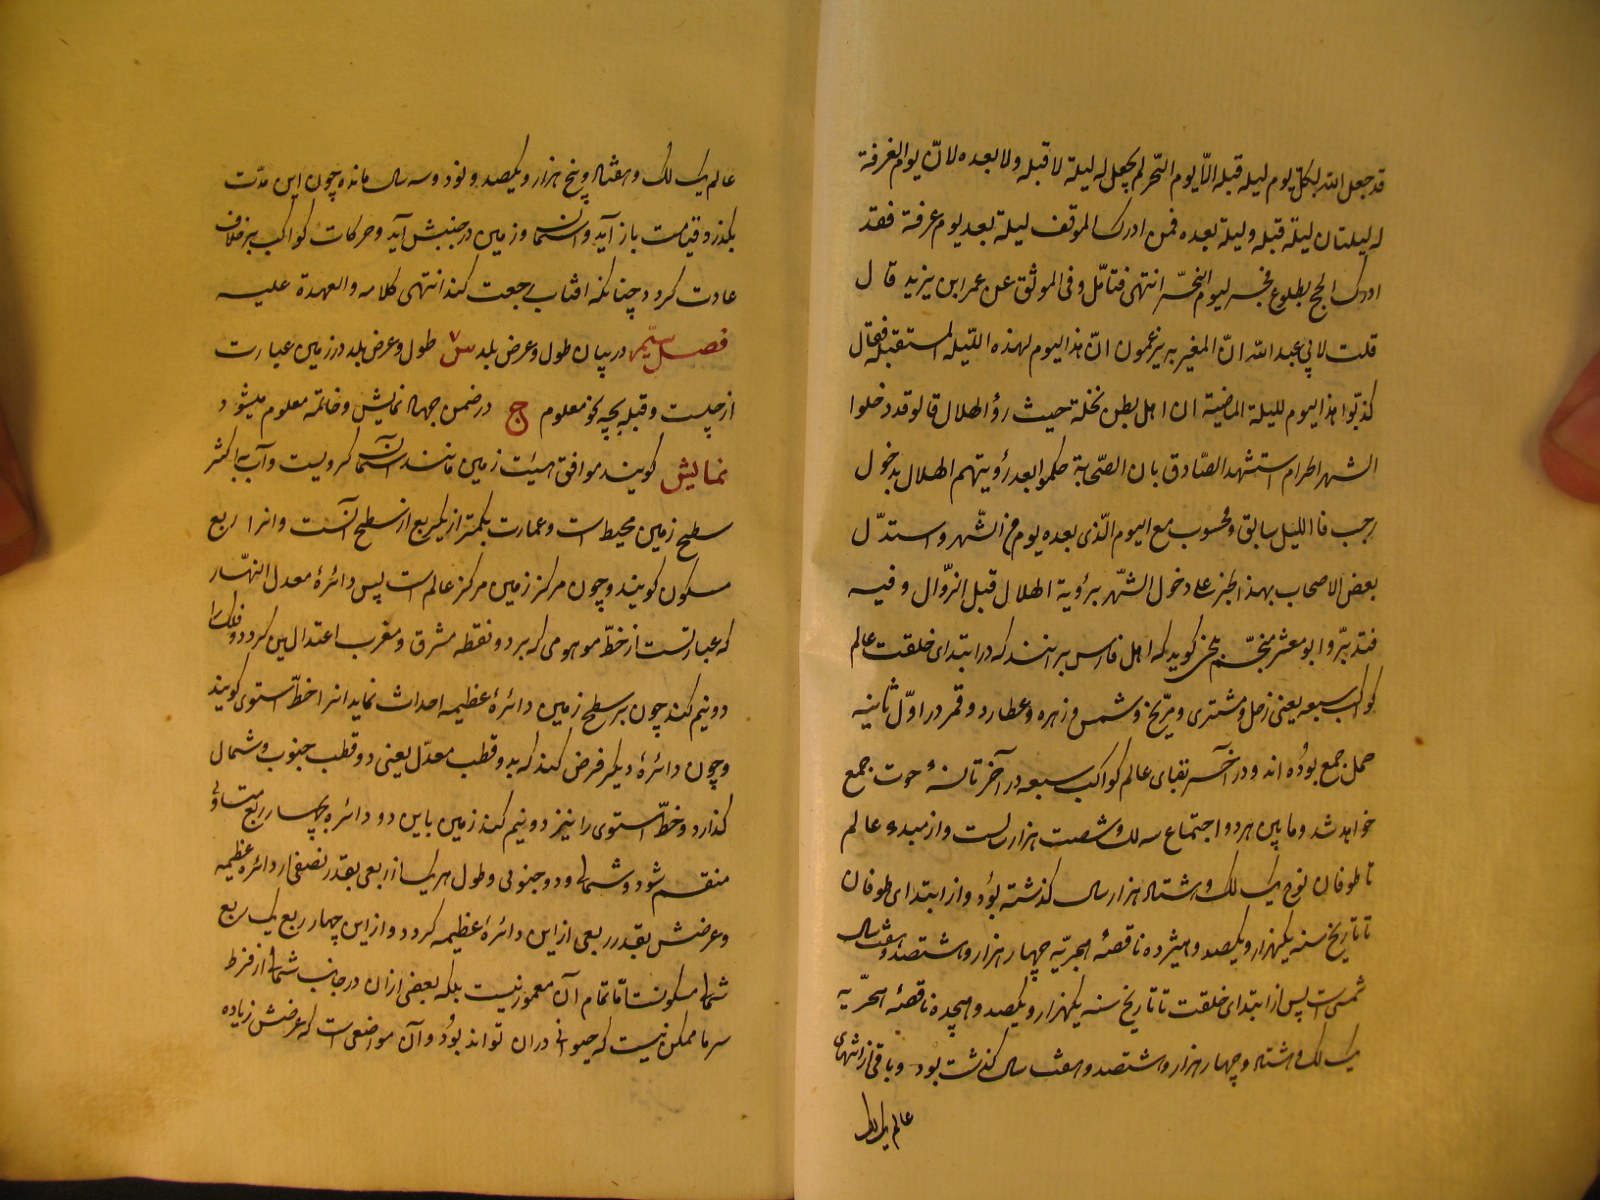 قد جعل الله لکلّ یوم لیله قبله الّا یوم النّحر لم یجعل له لیلة لا قبله ولا بعده لانّ یوم العرفة
له لیلتان لیلة قبله ولیلة بعده فمن ادرک الموقف لیلة بعد یوم عرفة فقد
ادرک الحج بطلوع فجر لیوم النحر انتهی فتامّل وفی الموثق عن عمر ابن یزید قال
قلت لابی عبد الله انّ المغیریه یزعمون انّ هذا الیوم لهذه اللیله المستقبله فقال
کذبوا هذا الیوم للیلة الماضیة ان اهل بطن نخلة حیث رؤ الهلال قالو قد دخلوا
الشهر الحرام استشهد الصّادق بان الصّحابة حکموا بعد رؤیتهم الهلال بدخول
رجب فا اللیل سابق ومحسوب مع الیوم الّذی بعده یوم من الشّهر واستدلّ
بعض الاصحاب بهذ الخبر علی دخول الشّهر برؤیة الهلال قبل الزّوال وفیه
فتدبّر وابو معشر منجّم بلخی کوید که اهل فارس برانند که در ابتدای خلقت عالم
کواکب سبعه یعنی زحل و مشتری و مرّیخ و شمس و زهره و عطارد و قمر در اوّل ثانیه
حمل جمع بوده اند و در آخر بقای عالم کواکب سبعه در آخر ثالثهٔ حوت جمع
خواهد شد و ما بین هر دو اجتماع سه لک و شصت هزار سالست و از مبدء عالم
تا طوفان نوح یک لک و هشتاد هزار سال کذشته بود و از ابتدای طوفان
تا تاریخ سنه یکهزار و یکصد و هیژده ناقصهٔ هجریّه چهار هزار و هشتصد و هفت سال
شمسی است پس از ابتدای خلقت تا تاریخ سنه یکهزار و یکصد و هیجده ناقصهٔ هجریّه
یک لک و هشتاد و چهار هزار و هشتصد و هفت سال کذشت بود و باقی از انتهای
عالم یک لک
عالم یک لک و هفتاد و پنج هزار و یکصد و نود و سه سال مانده چون این مدّت
بکذرد قیامت باز آید و آسمان و زمین در جنبش آید و حرکات کواکب بر خلاف
عادت کردد چنانکه افتاب رجعت کند انتهی کلامه والعهدة علیه
فصل سیّم در بیان طول و عرض بلد س طول و عرض بلد در زمین عبارت
از چیست و قبله بچه کونه معلوم ج در ضمن چهار نمایش و خاتمه معلوم میشود
نمایش کویند موافق هیئت زمین مانند آسمان کرویست و آب باکثر
سطح زمین محیط است و عمارت بکمتر از یکربع از سطح آنست و انرا ربع
مسکون کویند و چون مرکز زمین مرکز عالم است پس دائرهٔ معدل النهّار
که عبارتست از خطّ موهومی که بر دو نقطه مشرق و مغرب اعتدالین کردد و فلک را
دو نیم کند چون بر سطح زمین دائرهٔ عظیمه احداث نماید انرا خطّ استوی کویند
و چون دائرهٔ دیکر فرض کنند که بدو قطب معدّل یعنی دو قطب جنوب و شمال
کذارد و خطّ استوی را نیز دو نیم کند زمین باین دو دائره بچهار ربع متساوی
منقسم شود دو شمالی و دو جنوبی و طول هر یک از ربعی بقدر نصفی از دائره عظیمه
و عرضش بقدر ربعی از این دائرهٔ عظیمه کردد و از این چهار ربع یک ربع
شمالی مسکونست امّا تمام آن معمور نیست بلکه بعضی ازان در جانب شمال از فرط
سرما ممکن نیست که حیوانی دران تواند بود و آن مواضعی است که عرضش زیاده